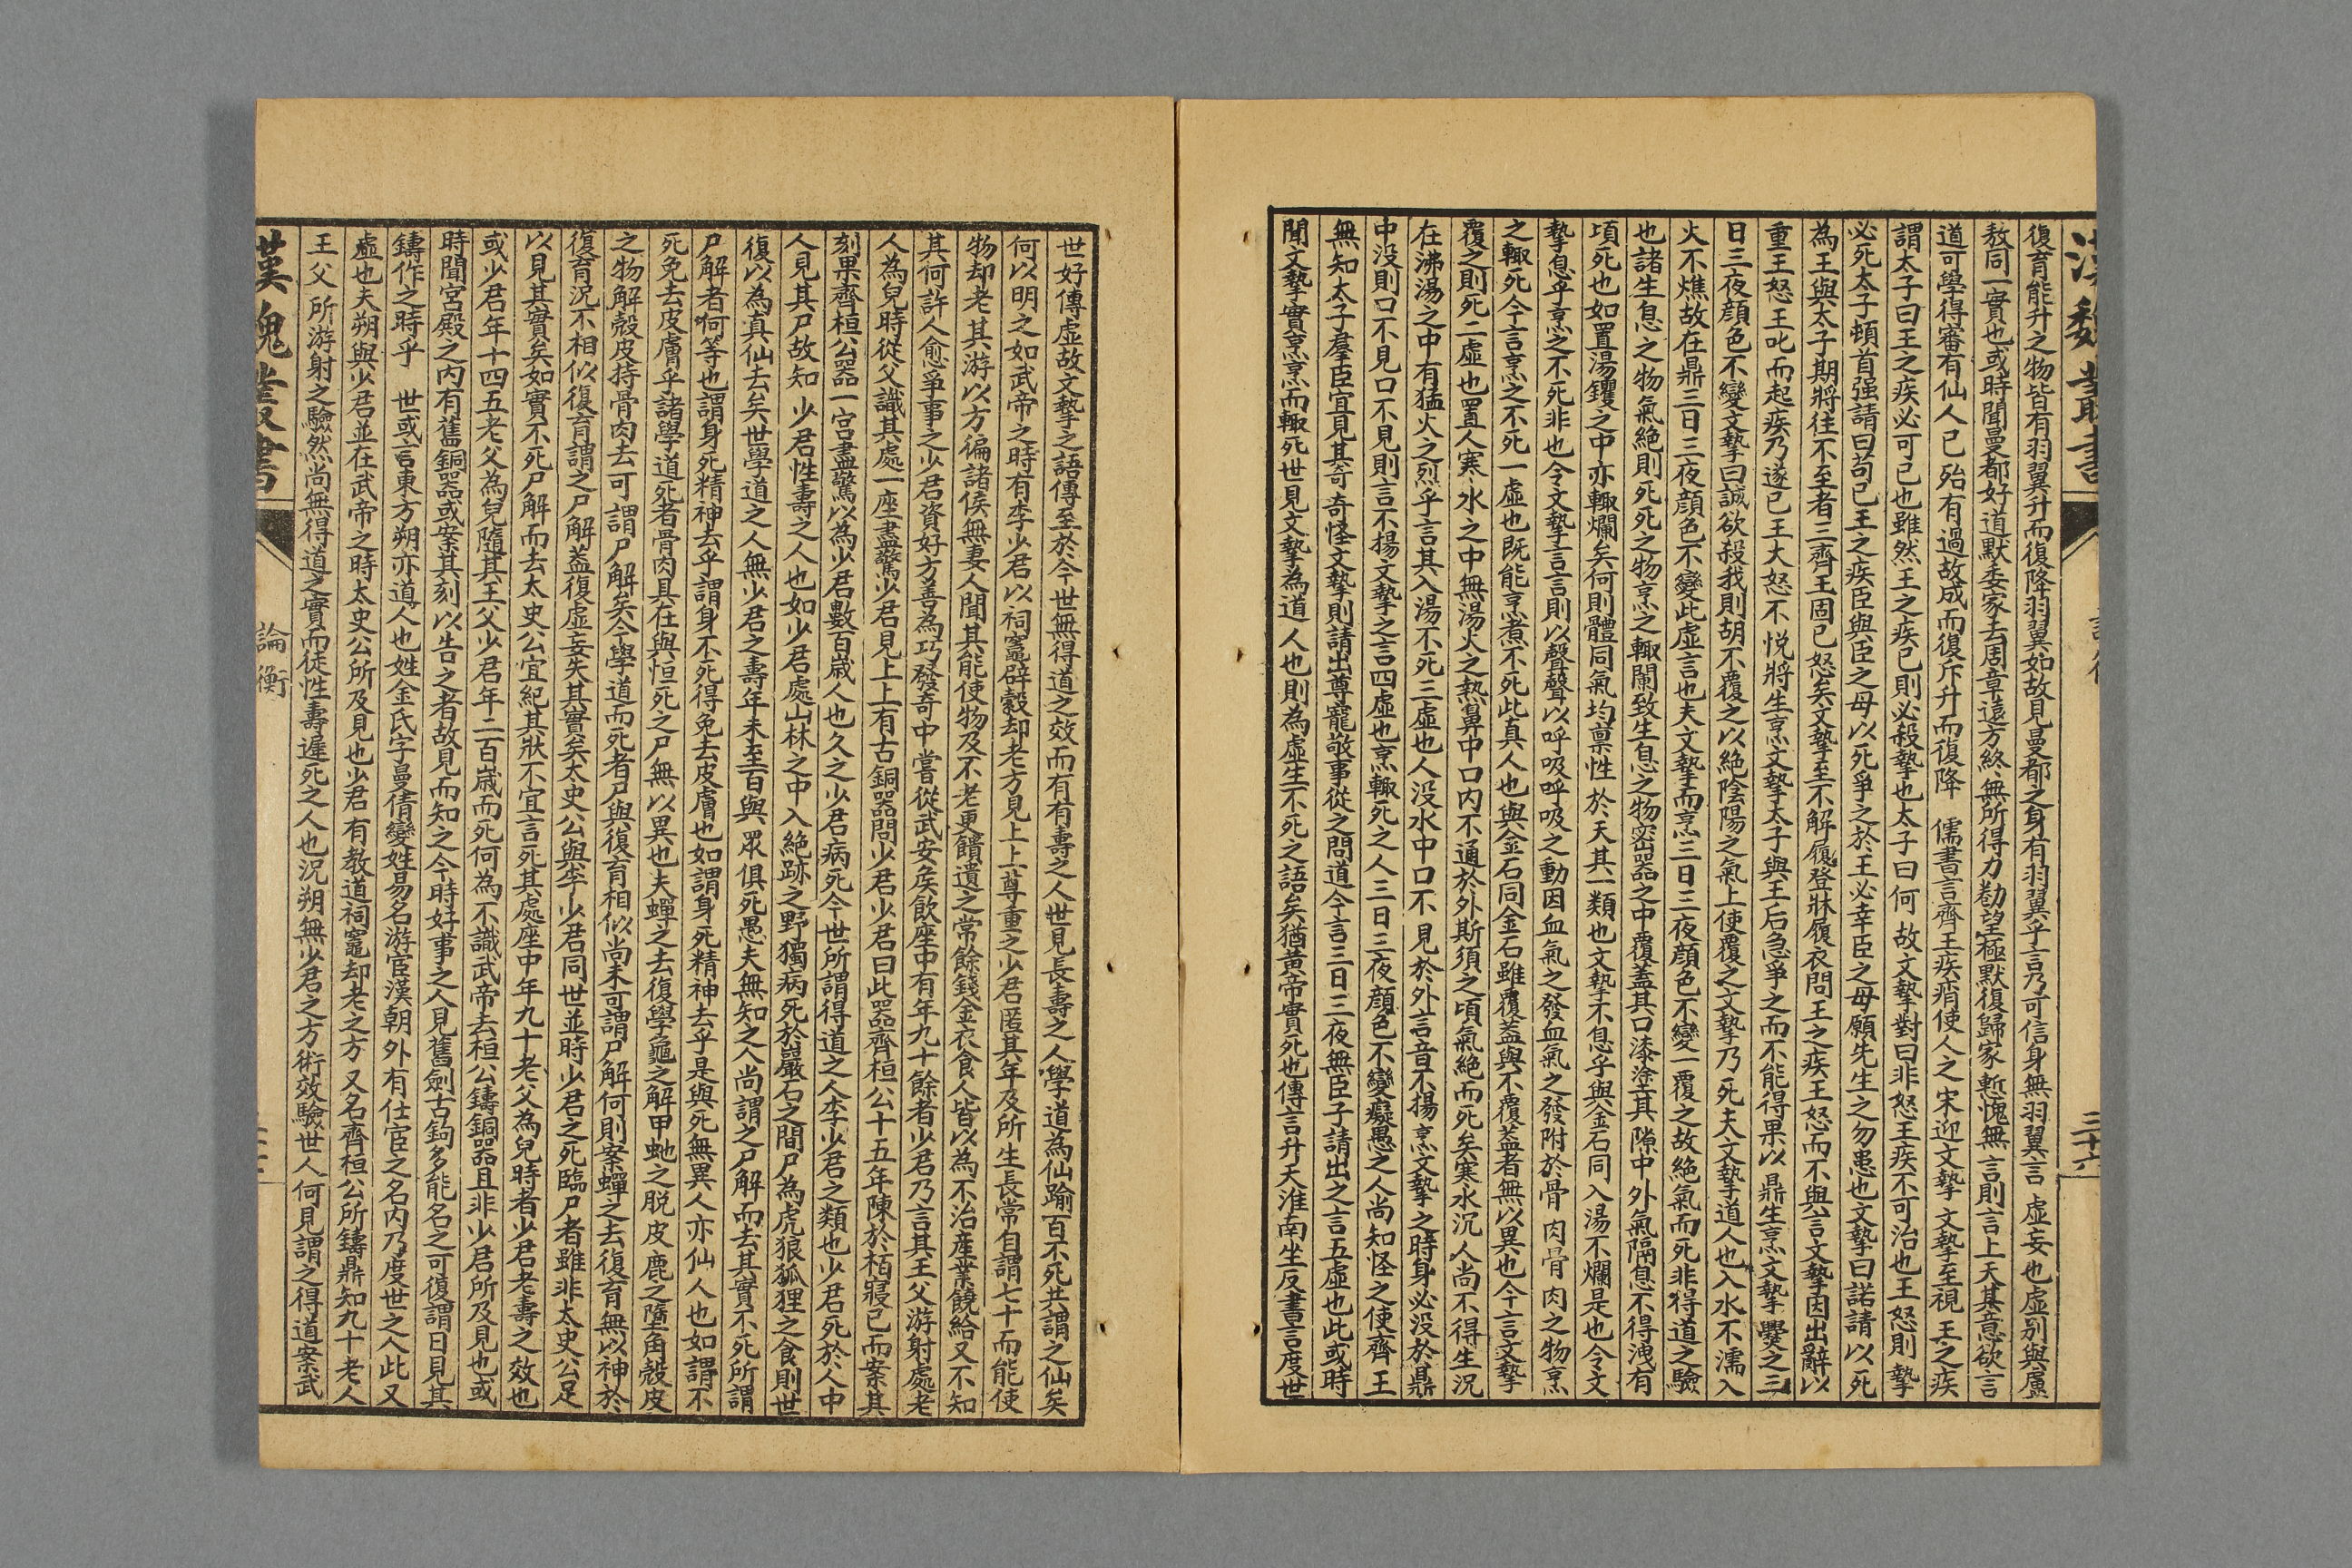 漢魏叢書
三十六
復育能升之物皆有羽翼升而復降羽翼如故見曼都之身有羽翼乎言乃可信身無羽翼言虛妄也虛則與盧
敖同一實也或時聞曼都好道默委家去周章遠方終無所得力勌望極默復歸家慙愧無言則言上天其意欲言
道可學得審有仙人已殆有過故成而復斥升而復降 儒書言齊王疾痟使人之宋迎文摯文摯至視王之疾
謂太子曰王之疾必可已也雖然王之疾已則必殺摯也太子曰何故文摯對曰非怒王疾不可治也王怒則摯
必死太子頓首强請曰苟已王之疾臣與臣之母以死爭之於王必幸臣之母願先生之勿患也文摯曰諾請以死
為王與太子期將往不至者三齊王固已怒矣文摯至不解履登牀履衣問王之疾王怒而不與言文摯因出辭以
重王怒王叱而起疾乃遂已王大怒不悅將生烹文摯太子與王后急爭之而不能得果以鼎生烹文摯爨之三
日三夜顏色不變文摯曰誠欲殺我則胡不覆之以絕陰陽之氣上使覆之文摯乃死夫文摯道人也入水不濡入
火不燋故在鼎三日三夜顏色不變此虛言也夫文摯而烹三日三夜顏色不變一覆之故絕氣而死非得道之驗
也諸生息之物氣絕則死死之物烹之輒爛致生息之物密器之中覆蓋其口漆塗其隙中外氣隔息不得洩有
頃死也如置湯鑊之中亦輒爛矣何則體同氣均稟性於天其一類也文摯不息乎與金石同入湯不爛是也令文
摯息乎烹之不死非也令文摯言言則以聲聲以呼吸呼吸之動因血氣之發血氣之發附於骨肉骨肉之物烹
之輒死今言烹之不死一虛也既能烹煮不死此真人也與金石同金石雖覆蓋與不覆蓋者無以異也今言文摯
覆之則死二虛也置人寒水之中無湯火之熱鼻中口內不通於外斯須之頃氣絕而死矣寒水沉人尚不得生況
在沸湯之中有猛火之烈乎言其入湯不死三虛也人沒水中口不見於外言音不揚烹文摯之時身必沒於鼎
中沒則口不見口不見則言不揚文摯之言四虛也烹輒死之人三日三夜顏色不變癡愚之人尚知怪之使齊王
無知太子羣臣宜見其奇奇怪文摯則請出尊寵敬事從之問道今言三日三夜無臣子請出之言五虛也此或時
聞文摯實烹烹而輒死世見文摯為道人也則為虛生不死之語矣猶黃帝實死也傳言升天淮南坐反書言度世
世好傳虛故文摯之語傳至於今世無得道之效而有有壽之人世見長壽之人學道為仙踰百不死共謂之仙矣
何以明之如武帝之時有李少君以祠竈辟穀却老方見上上尊重之少君匿其年及所生長常自謂七十而能使
物却老其游以方徧諸侯無妻人聞其能使物及不老更饋遺之常餘錢金衣食人皆以為不治產業饒給又不知
其何許人愈爭事之少君資好方善為巧發奇中嘗從武安矦飲座中有年九十餘者少君乃言其王父游射處老
人為兒時從父識其處一座盡驚少君見上上有古銅器問少君少君曰此器齊桓公十五年陳於栢寢已而案其
刻果齊桓公器一宮盡驚以為少君數百歲人也久之少君病死今世所謂得道之人李少君之類也少君死於人中
人見其尸故知 少君性壽之人也如少君處山林之中入絕跡之野獨病死於巖石之間尸為虎狼狐狸之食則世
復以為真仙去矣世學道之人無少君之壽年未至百與眾俱死愚夫無知之人尚謂之尸解而去其實不死所謂
尸解者何等也謂身死精神去乎謂身不死得免去皮膚也如謂身死精神去乎是與死無異人亦仙人也如謂不
死免去皮膚乎諸學道死者骨肉具在與恒死之尸無以異也夫蟬之去復學龜之解甲虵之脫皮鹿之墮角殼皮
之物解殼皮持骨肉去可謂尸解矣今學道而死者尸與復育相似尚未可謂尸解何則案蟬之去復育無以神於
復育況不相似復育謂之尸解蓋復虛妄失其實矣太史公與李少君同世並時少君之死臨尸者雖非太史公足
以見其實矣如實不死尸解而去太史公宜紀其狀不宜言死其處座中年九十老父為兒時者少君老壽之效也
或少君年十四五老父為兒隨其王父少君年二百歲而死何為不識武帝去桓公鑄銅器且非少君所及見也或
時聞宮殿之內有舊銅器或案其刻以告之者故見而知之今時好事之人見舊劍古鉤多能名之可復謂目見其
鑄作之時乎 世或言東方朔亦道人也姓金氏字曼倩變姓易名游宦漢朝外有仕宦之名內乃度世之人此又
虛也夫朔與少君並在武帝之時太史公所及見也少君有教道祠竈却老之方又名齊桓公所鑄鼎知九十老人
王父所游射之驗然尚無得道之實而徒性壽遲死之人也況朔無少君之方術效驗世人何見謂之得道案武
漢魏叢書
論衡